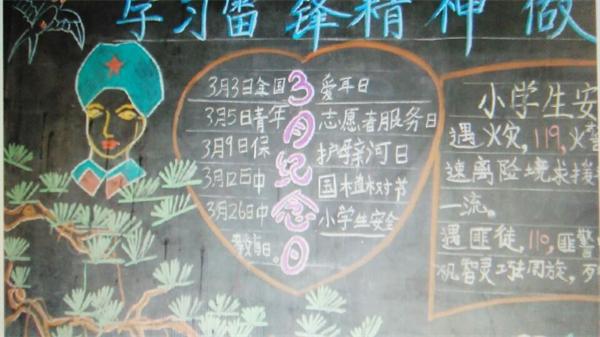 学习雷锋精神 做
3月纪念日
3月3日全国爱耳日
3月5日青年志愿者服务日
3月9日保护母亲河日
3月12日中国植树节
3月26日中小学生安全
教育日。
小学生安
遇火灾,119,火警
速离险境求援
一流。
遇匪徒,110,匪警
机智灵巧周旋,